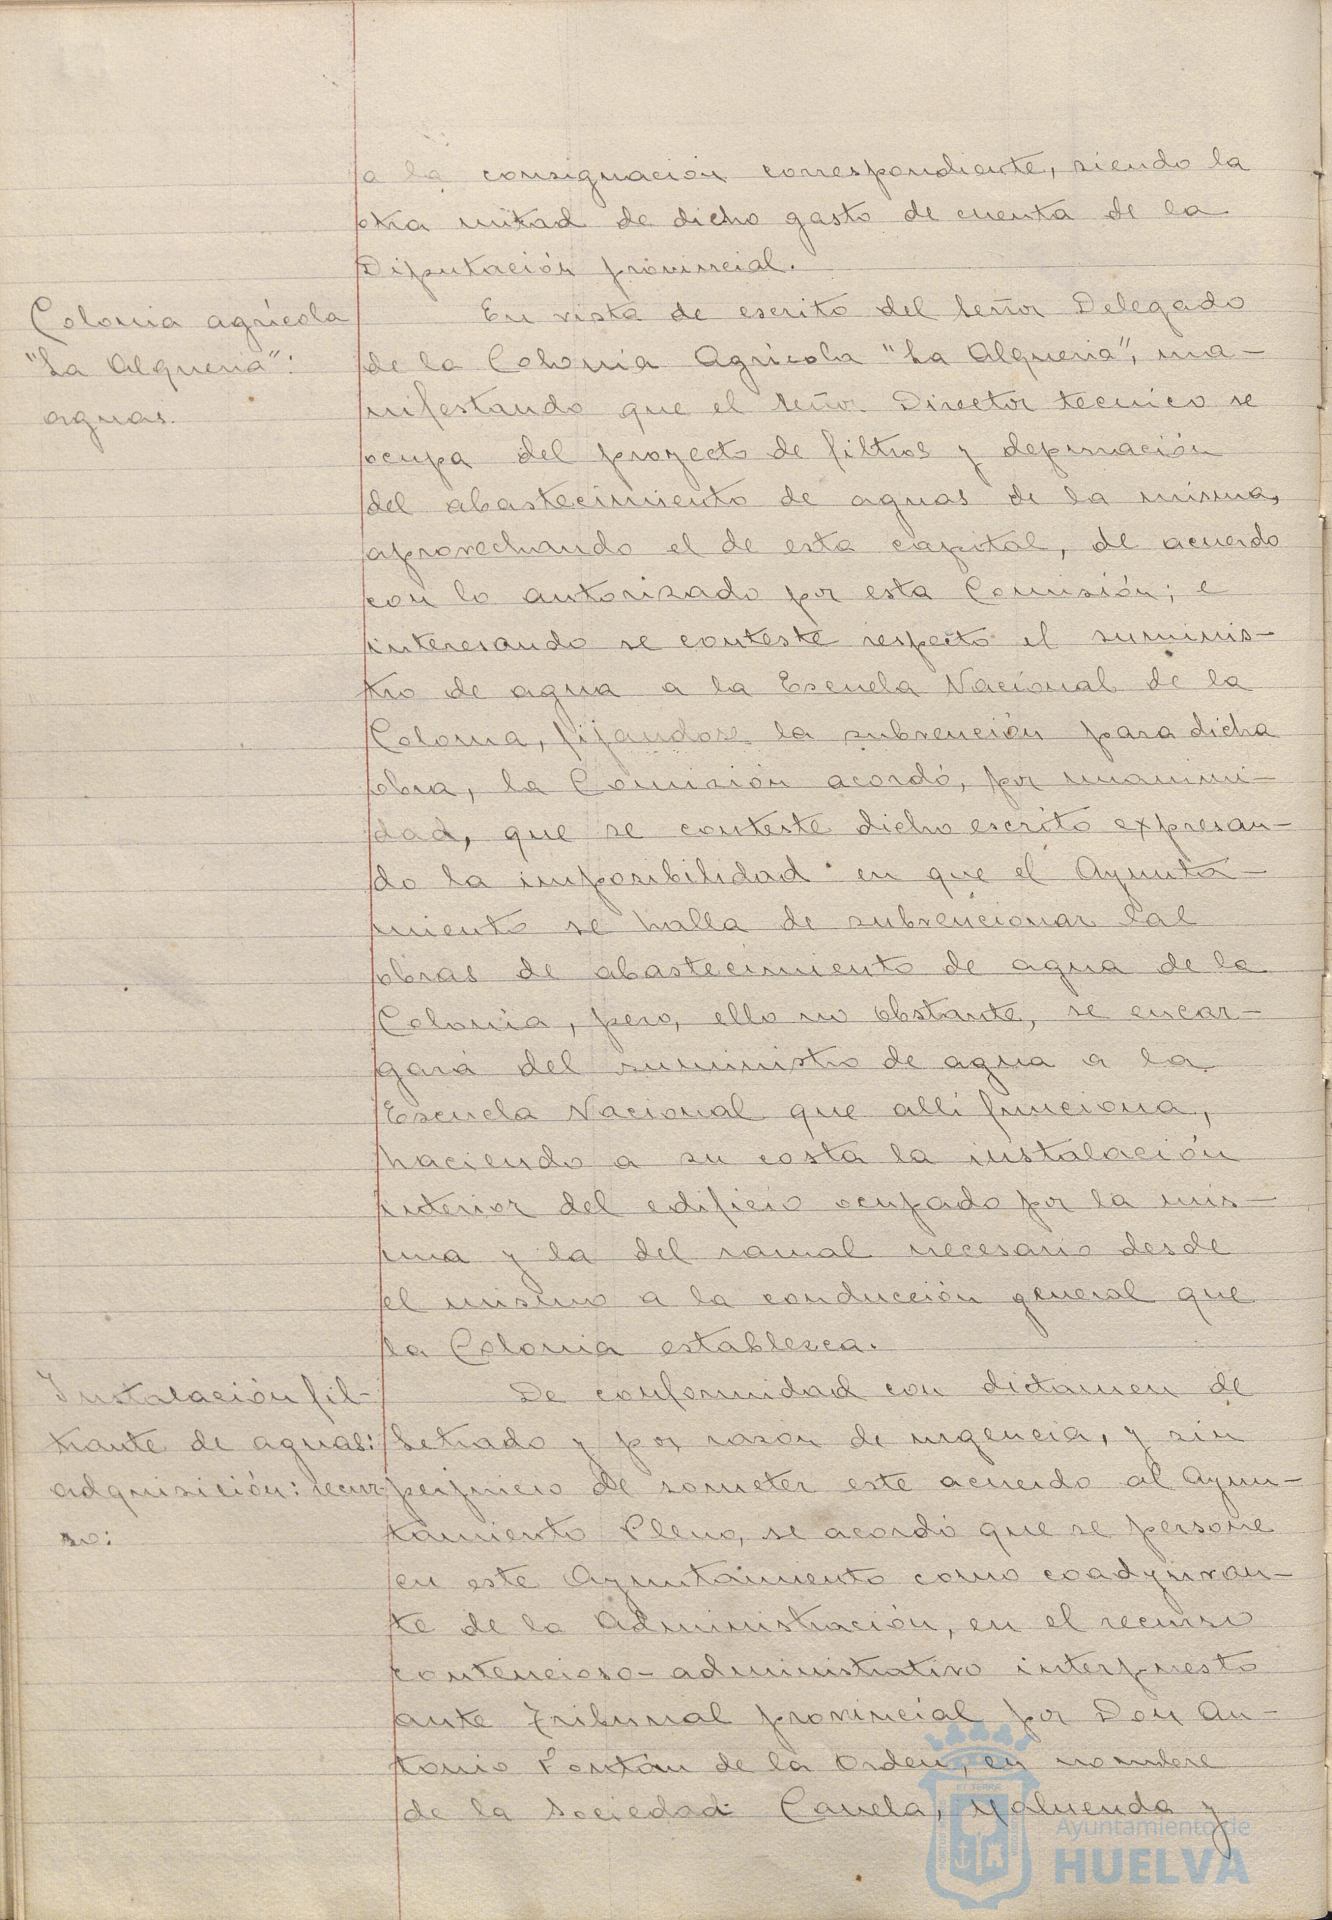 a la consignación correspondiente, siendo la
otra mitad de dicho gasto de cuenta de la
Diputación provincial.
Colonia agrícola
"La Alqueria":
aguas.
En vista de escrito del Señor Delegado
de la Colonia Agrícola "La Alqueria", ma-
nifestando que el Señor Director tecnico se
ocupa del proyecto de filtros y depuración
del abastecimiento de aguas de la misma,
aprovechando el de esta capital, de acuerdo
con lo autorizado por esta Comisión; e
interesando se conteste respecto el suminis-
tro de agua a la Escuela Nacional de la
Colonia, fijandose la subvención para dicha
obra, la Comisión acordó, por unanimi-
dad, que se conteste dicho escrito expresan-
do la imposibilidad en que el Ayunta-
miento se halla de subvencionar las
obras de abastecimiento de agua de la
Colonia, pero, ello no obstante, se encar-
gará del suministro de agua a la
Escuela Nacional que allí funciona,
haciendo a su costa la instalación
interior del edificio ocupado por la mis-
ma y la del ramal necesario desde
el mismo a la conducción general que
la Colonia establezca.
Instalación fil-
trante de aguas:
adquisición: recur-
so:
De conformidad con dictamen de
Letrado y por razón de urgencia, y sin
perjuicio de someter este acuerdo al Ayun-
tamiento Pleno, se acordó que se persone
en este Ayuntamiento como coadyuvan-
te de la Administración, en el recurso
contencioso-administrativo interpuesto
ante Tribunal provincial por Don An-
tonio Pontán de la Orden, en nombre
de la Sociedad Canela, Maluenda y
Ayuntamiento de
HUELVA